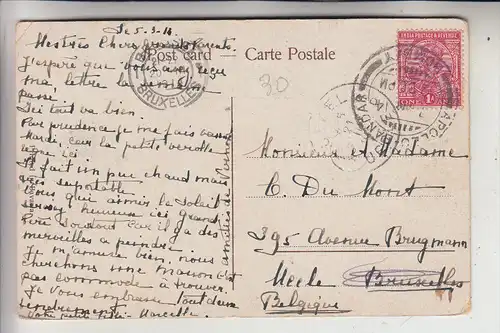 Le 5-3-14
Mes très chers grands Parents.
J'espère que vous avez reçu
ma lettre la semaine
passé.
Ici tout va bien.
Par prudence je me fais
Mardi, car la petite verole
règne ici
Il fait un peu chaud mais
très supportable
Vous qui aimez le soleil
seriez heureuse ici Grand
Père surtout car il y a des
merveilles a peindre
Je m'amuse bien, nous
cherchons une maison c'est
pas commode à trouver.
Je vous embrasse tout deux
tendrement
Votre petit Marcelle.
Post card — Carte Postale
30
BRUXELLES
INDIA POSTAGE & REVENUE
ONE 1A
Monsieur et Madame
C. Du Mont
395 Avenue Brugmann
Uccle Bruxelles
Belgique